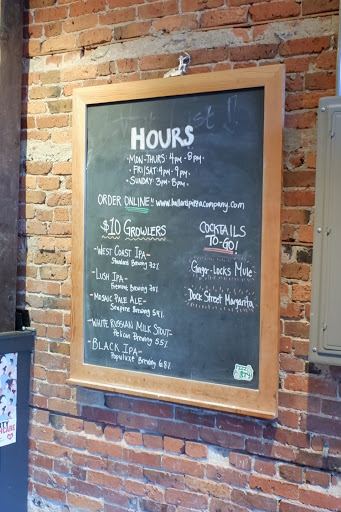 HOURS
• MON-THURS: 4PM - 8PM •
• FRI/SAT: 4PM - 9PM •
• SUNDAY: 3PM - 8PM •
ORDER ONLINE!! www.ballardpizzacompany.com
$10 GROWLERS
- WEST COAST IPA -
Standard Brewing 7.2%
- LUSH IPA -
Fremont Brewing 7.0%
- MOSAIC PALE ALE -
Seapine Brewing 5.4%
- WHITE RUSSIAN MILK STOUT -
Pelican Brewing 5.5%
- BLACK IPA -
Populuxe Brewing 6.8%
COCKTAILS
TO-GO!
Ginger-Locks Mule
Dock Street Margarita